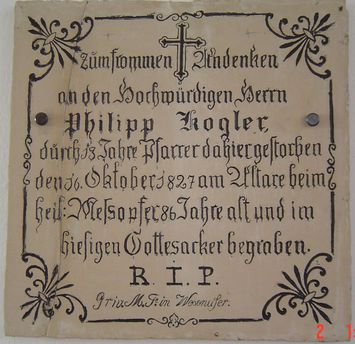 Zum frommen Andenken
an den Hochwürdigen Herrn
Philipp Kogler
durch 13 Jahre Pfarrer dahier gestorben
den 16. Oktober 1827 am Altare beim
heil: Messopfer 86 Jahre alt und im
hiesigen Gottesacker begraben.
R. I. P.